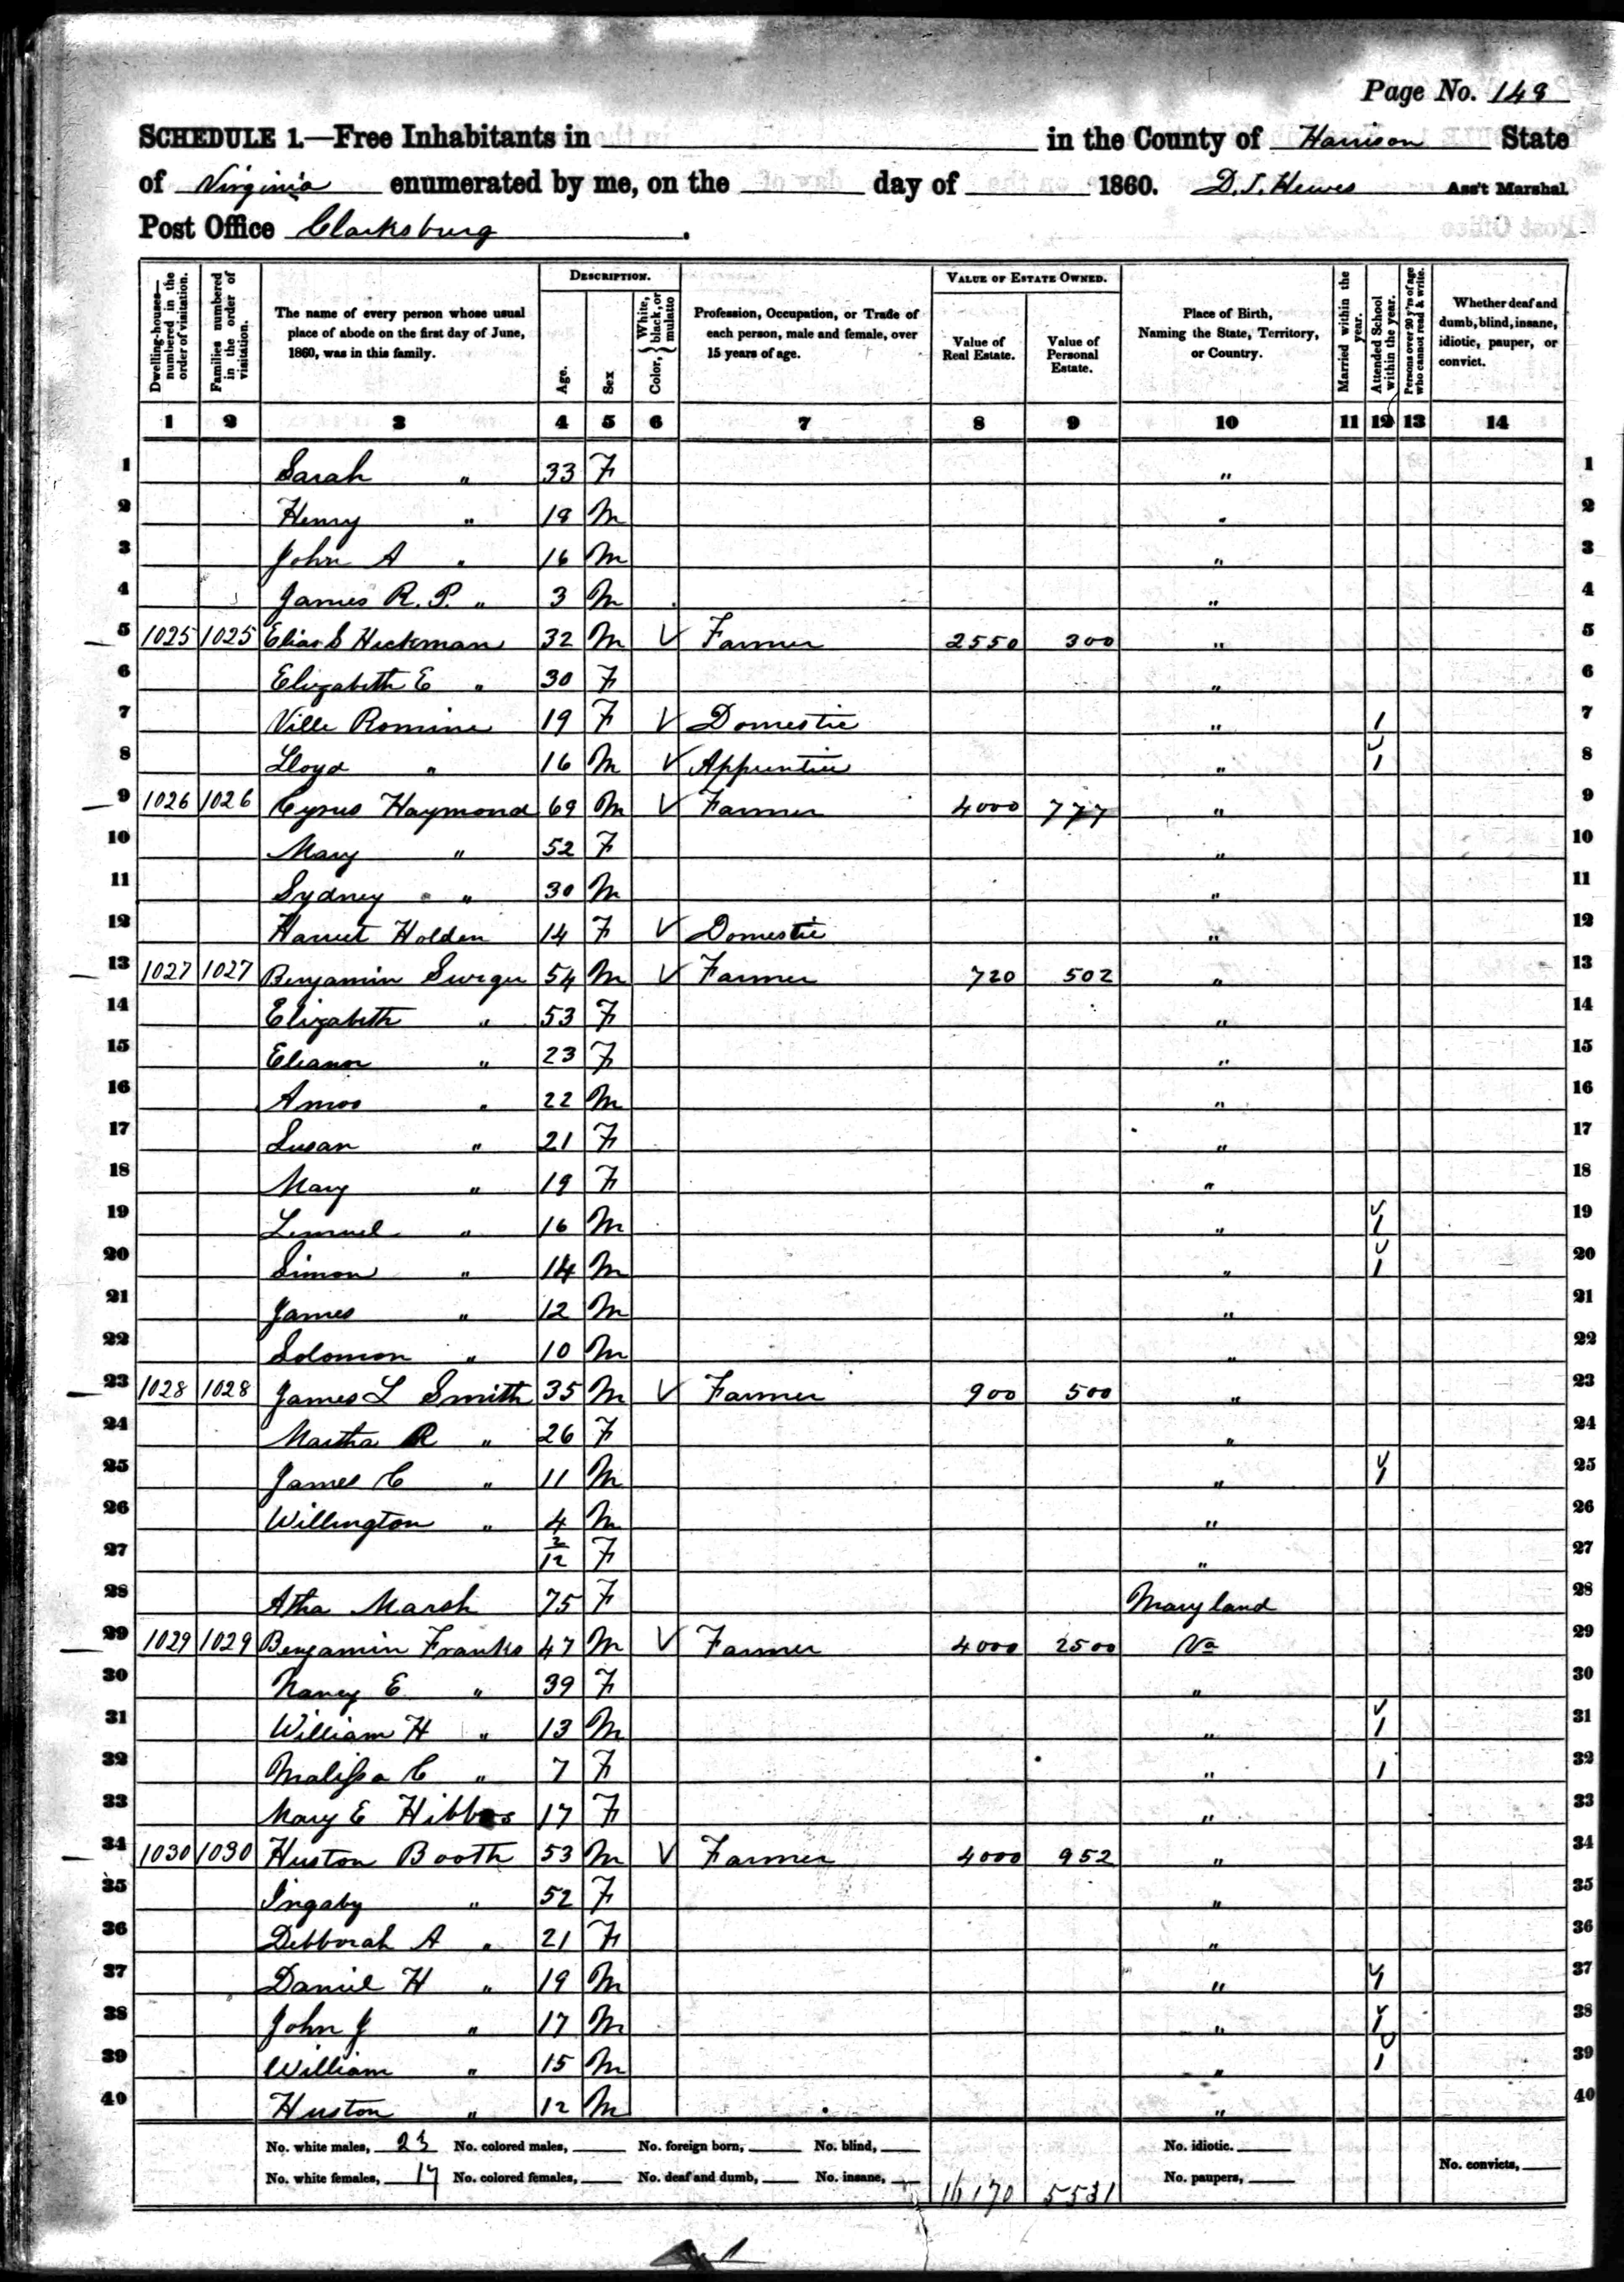 Page No. 148
SCHEDULE 1.—Free Inhabitants in in the County of Harrison State
of Virginia enumerated by me, on the day of 1860. D. S. Hewes Ass't Marshal
Post Office Clarksburg.
Dwelling-houses—numbered in the order of visitation. Families numbered in the order of visitation. The name of every person whose usual place of abode on the first day of June, 1860, was in this family. DESCRIPTION. Age. Sex Color, { White, black, or mulatto Profession, Occupation, or Trade of each person, male and female, over 15 years of age. VALUE OF ESTATE OWNED. Value of Real Estate. Value of Personal Estate. Place of Birth, Naming the State, Territory, or Country. Married within the year. Attended School within the year. Persons over 20 y'rs of age who cannot read & write. Whether deaf and dumb, blind, insane, idiotic, pauper, or convict.
1 2 3 4 5 6 7 8 9 10 11 12 13 14
1 Sarah " 33 F " 1
2 Henry " 18 M " 2
3 John A " 16 M " 3
4 James R. P. " 3 M " 4
5 1025 1025 Elias S Hickman 32 M V Farmer 2550 300 " 5
6 Elizabeth E " 30 F " 6
7 Ville Romine 19 F V Domestic " 1 7
8 Lloyd " 16 M V Apprentice " 1 8
9 1026 1026 Cyrus Haymond 69 M V Farmer 4000 777 " 9
10 Mary " 52 F " 10
11 Sydney " 30 M " 11
12 Harriet Holden 14 F V Domestic " 12
13 1027 1027 Benjamin Swiger 54 M V Farmer 720 502 " 13
14 Elizabeth " 53 F " 14
15 Eleanor " 23 F " 15
16 Amos " 22 M " 16
17 Susan " 21 F " 17
18 Mary " 19 F " 18
19 Lemuel " 16 M " 1 19
20 Simon " 14 M " 1 20
21 James " 12 M " 21
22 Solomon " 10 M " 22
23 1028 1028 James L Smith 35 M V Farmer 900 500 " 23
24 Martha R " 26 F " 24
25 James C " 11 M " 1 25
26 Willington " 4 M " 26
27 2/12 F " 27
28 Atha Marsh 75 F Maryland 28
29 1029 1029 Benjamin Franks 47 M V Farmer 4000 2500 Va 29
30 Nancy E " 39 F " 30
31 William H " 13 M " 1 31
32 Malissa C " 7 F " 1 32
33 Mary E Hibbs 17 F " 33
34 1030 1030 Huston Booth 53 M V Farmer 4000 952 " 34
35 Ingaby " 52 F " 35
36 Debborah A " 21 F " 36
37 Daniel H " 19 M " 1 37
38 John J " 17 M " 1 38
39 William " 15 M " 1 39
40 Huston " 12 M " 40
No. white males, 23 No. colored males, No. foreign born, No. blind, No. idiotic.
No. white females, 17 No. colored females, No. deaf and dumb, No. insane, 16170 5531 No. paupers, No. convicts,